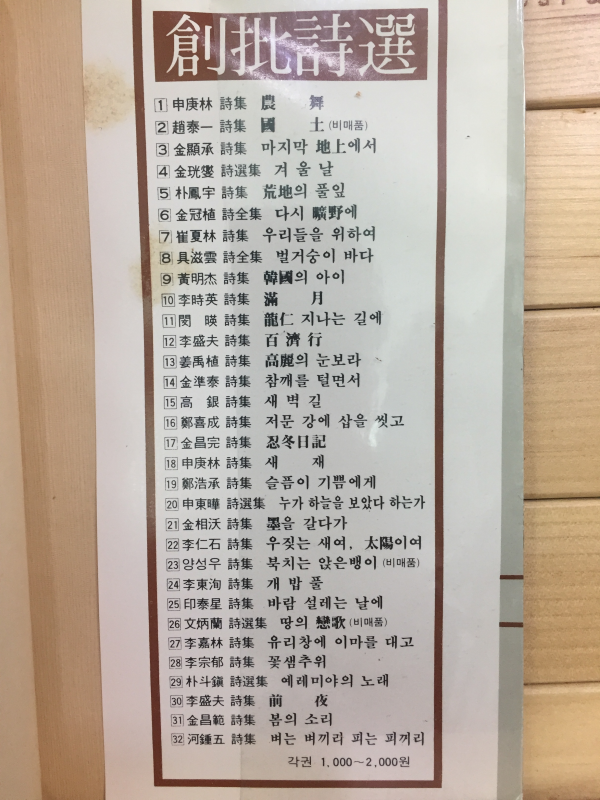 創批詩選
1 申庚林 詩集 農 舞
2 趙泰一 詩集 國 土 (비매품)
3 金顯承 詩集 마지막 地上에서
4 金珖燮 詩選集 겨울날
5 朴鳳宇 詩集 荒地의 풀잎
6 金冠植 詩全集 다시 曠野에
7 崔夏林 詩集 우리들을 위하여
8 具滋雲 詩全集 벌거숭이 바다
9 黃明杰 詩集 韓國의 아이
10 李時英 詩集 滿 月
11 閔 暎 詩集 龍仁 지나는 길에
12 李盛夫 詩集 百濟行
13 姜禹植 詩集 高麗의 눈보라
14 金準泰 詩集 참깨를 털면서
15 高 銀 詩集 새벽길
16 鄭喜成 詩集 저문 강에 삽을 씻고
17 金昌完 詩集 忍冬日記
18 申庚林 詩集 새 재
19 鄭浩承 詩集 슬픔이 기쁨에게
20 申東曄 詩選集 누가 하늘을 보았다 하는가
21 金相沃 詩集 墨을 갈다가
22 李仁石 詩集 우짖는 새여, 太陽이여
23 양성우 詩集 북치는 앉은뱅이 (비매품)
24 李東洵 詩集 개밥풀
25 印泰星 詩集 바람 설레는 날에
26 文炳蘭 詩選集 땅의 戀歌 (비매품)
27 李嘉林 詩集 유리창에 이마를 대고
28 李宗郁 詩集 꽃샘추위
29 朴斗鎭 詩選集 예레미야의 노래
30 李盛夫 詩集 前 夜
31 金昌範 詩集 봄의 소리
32 河鍾五 詩集 벼는 벼끼리 피는 피끼리
각권 1,000~2,000원